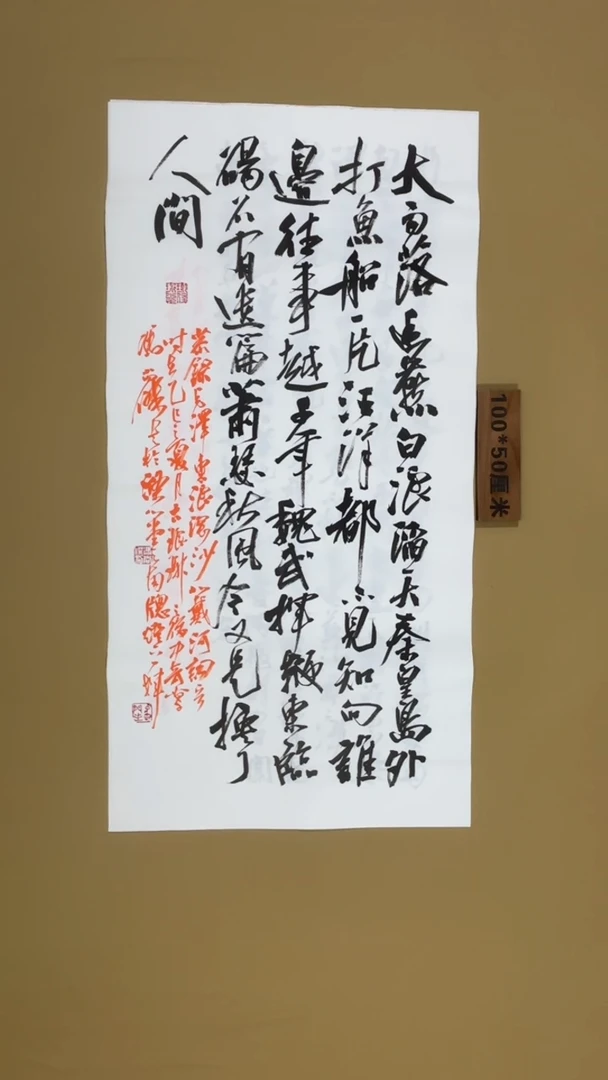 大雨落幽燕白浪滔天秦皇島外
打魚船一片汪洋都不見知向誰
邊往事越千年魏武揮鞭東臨
碣石有遺篇蕭瑟秋風今又是換了
人間
恭錄毛澤東浪淘沙北戴河詞一首
時在乙巳夏月
100*50厘米